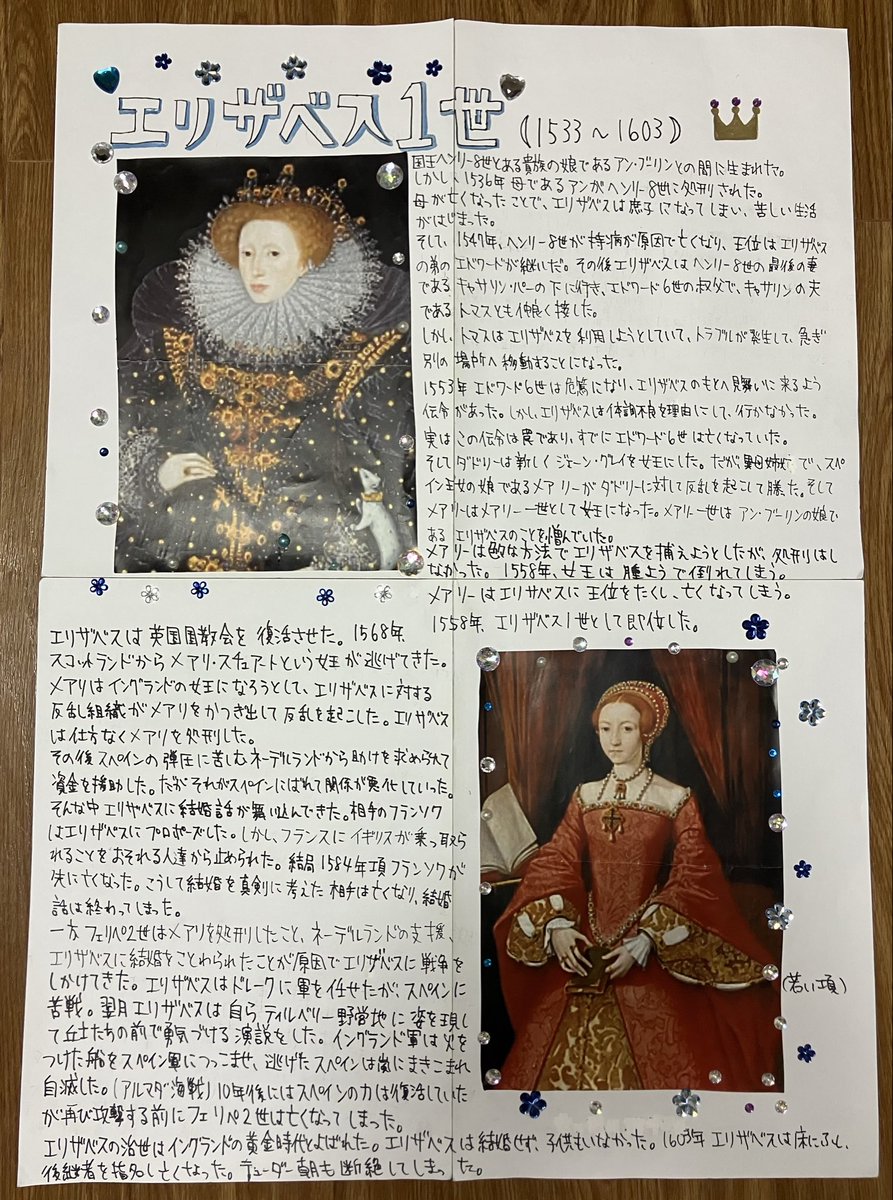 エリザベス1世 (1533〜1603)
国王ヘンリー8世とある貴族の娘であるアン・ブーリンとの間に生まれた。
しかし、1536年 母であるアンがヘンリー8世に処刑された。
母が亡くなったことで、エリザベスは庶子になってしまい、苦しい生活
がはじまった。
そして、1547年、ヘンリー8世が持病が原因で亡くなり、王位はエリザベス
の弟のエドワードが継いだ。その後エリザベスはヘンリー8世の最後の妻
であるキャサリン・パーの下に行き、エドワード6世の叔父で、キャサリンの夫
であるトマスとも仲良く接した。
しかし、トマスはエリザベスを利用しようとしていて、トラブルが発生して、急ぎ
別の場所へ移動することになった。
1553年エドワード6世は危篤になり、エリザベスのもとへ見舞いに来るよう
伝令があった。しかし、エリザベスは体調不良を理由にして、行かなかった。
実はこの伝令は罠であり、すでにエドワード6世は亡くなっていた。
そしてダドリーは新しくジェーン・グレイを女王にした。だが、異母姉妹で、スペ
イン王女の娘であるメアリーがダドリーに対して反乱を起こして勝った。そして
メアリーはメアリー一世として女王になった。メアリー一世はアン・ブーリンの娘で
あるエリザベスのことを憎んでいた。
メアリーは色々な方法でエリザベスを捕えようとしたが、処刑はし
なかった。1558年、女王は腫ようで倒れてしまう。
メアリーはエリザベスに王位をたくし、亡くなってしまう。
1558年、エリザベス1世として即位した。
エリザベスは英国国教会を復活させた。1568年、
スコットランドからメアリ・スチュアートという女王が逃げてきた。
メアリはイングランドの女王になろうとして、エリザベスに対する
反乱組織がメアリをかつぎ出して反乱を起こした。エリザベス
は仕方なくメアリを処刑した。
その後スペインの弾圧に苦しむネーデルランドから助けを求められて
資金を援助した。だがそれがスペインにばれて関係が悪化していった。
そんな中エリザベスに結婚話が舞い込んできた。相手のフランソワ
はエリザベスにプロポーズした。しかし、フランスにイギリスが乗っ取ら
れることをおそれる人達から止められた。結局1584年項フランソワが
先に亡くなった。こうして結婚を真剣に考えた相手は亡くなり、結婚
話は終わってしまった。
一方フェリペ2世はメアリを処刑したこと、ネーデルランドの支援、
エリザベスに結婚をことわられたことが原因でエリザベスに戦争を
しかけてきた。エリザベスはドレークに軍を任せたが、スペインに
苦戦。翌月エリザベスは自らティルベリー野営地に姿を現し
て兵士たちの前で勇気づける演説をした。イングランド軍は火を
つけた船をスペイン軍につっこませ、逃げたスペインは嵐にまきこまれ
自滅した。(アルマダ海戦) 10年後にはスペインの力は復活していた
が再び攻撃する前にフェリペ2世は亡くなってしまった。
エリザベスの治世はイングランドの黄金時代とよばれた。エリザベスは結婚せず、子供もいなかった。1603年エリザベスは床にふし、
後継者を指名し亡くなった。テューダー朝も断絶してしまった。
(若い項)